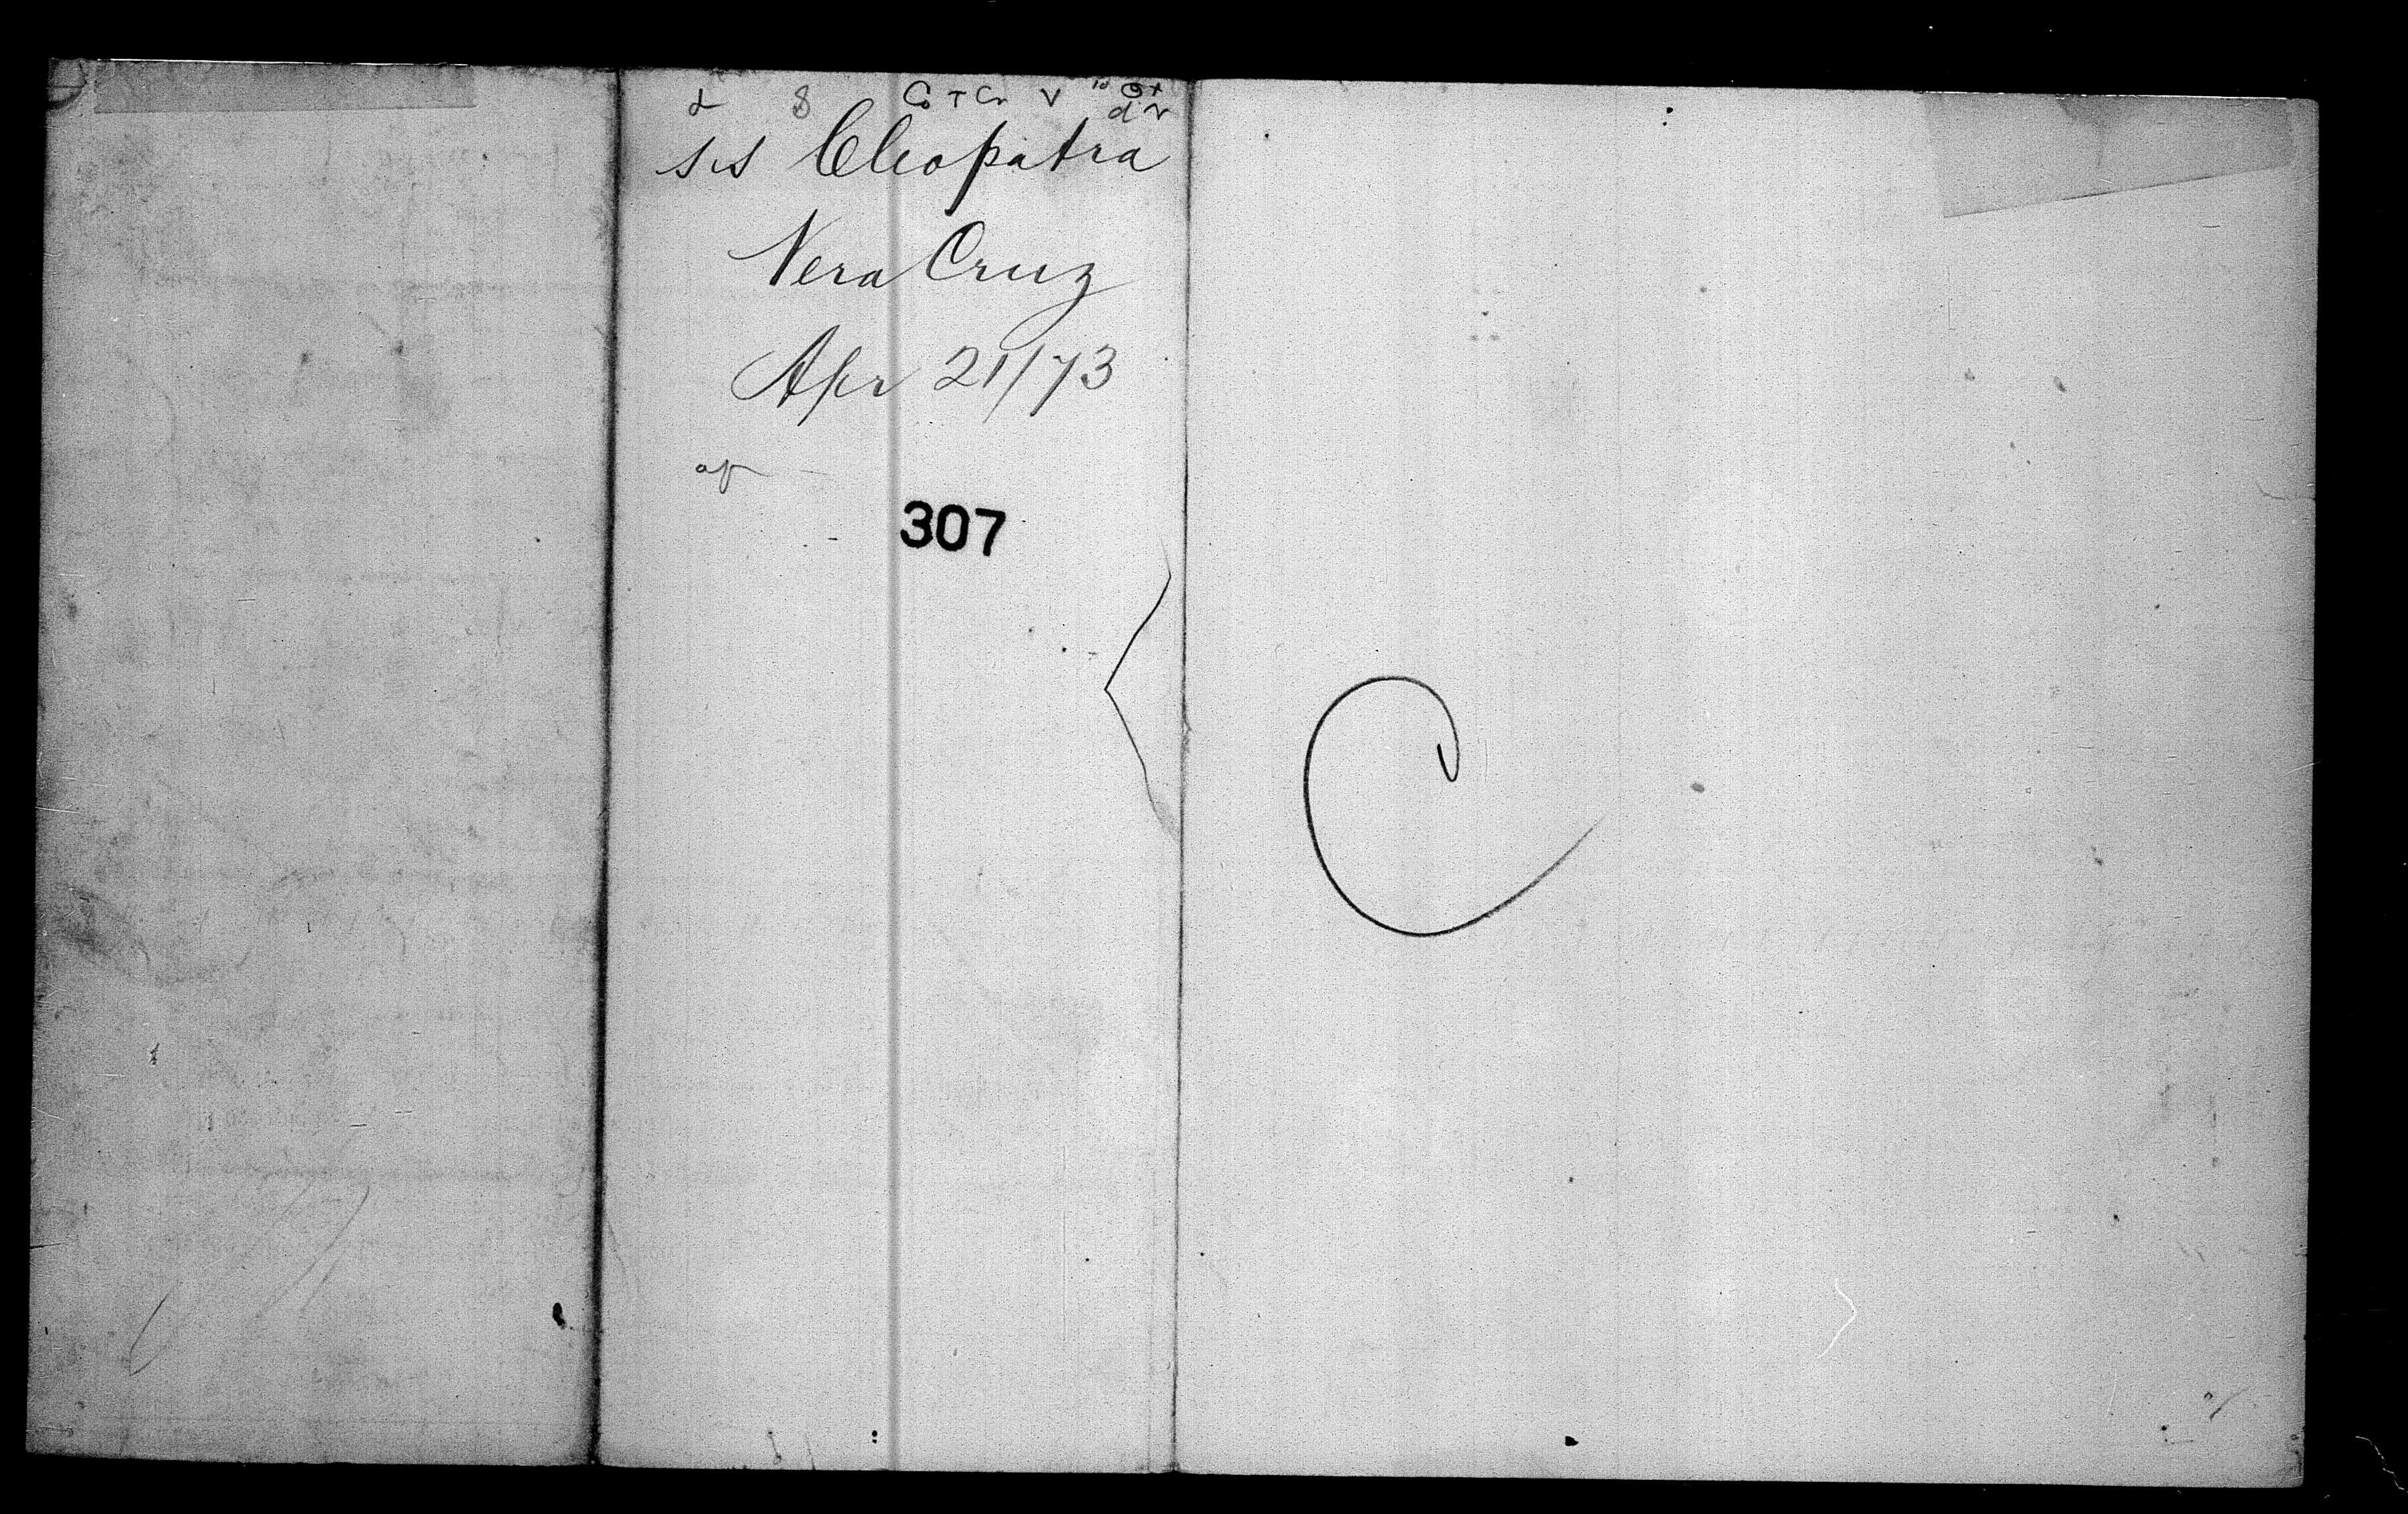 d 8 Co T Cr V
d v
SS Cleopatra
Vera Cruz
Apr 21/73
307
C